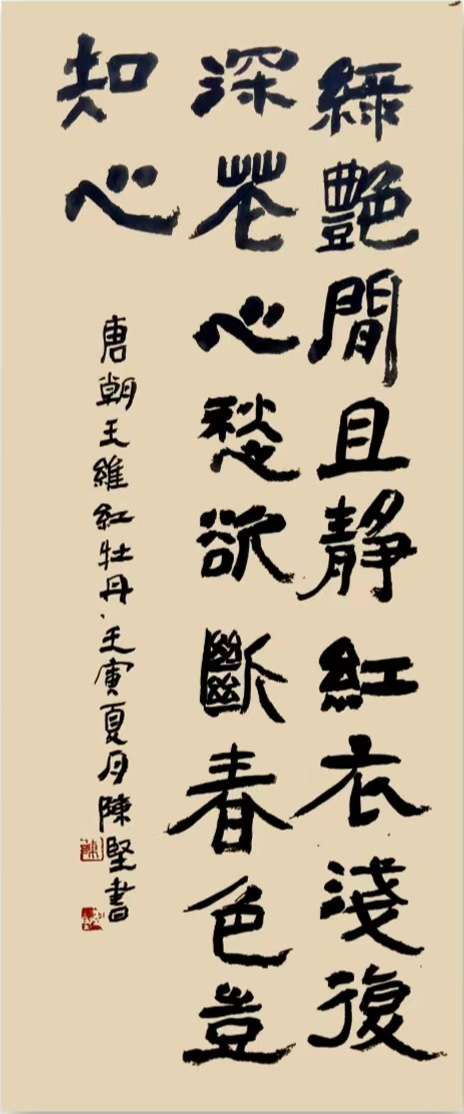 綠艷閒且靜紅衣淺復
深花心愁欲斷春色豈
知心
唐朝王維紅牡丹、壬寅夏月陳堅書